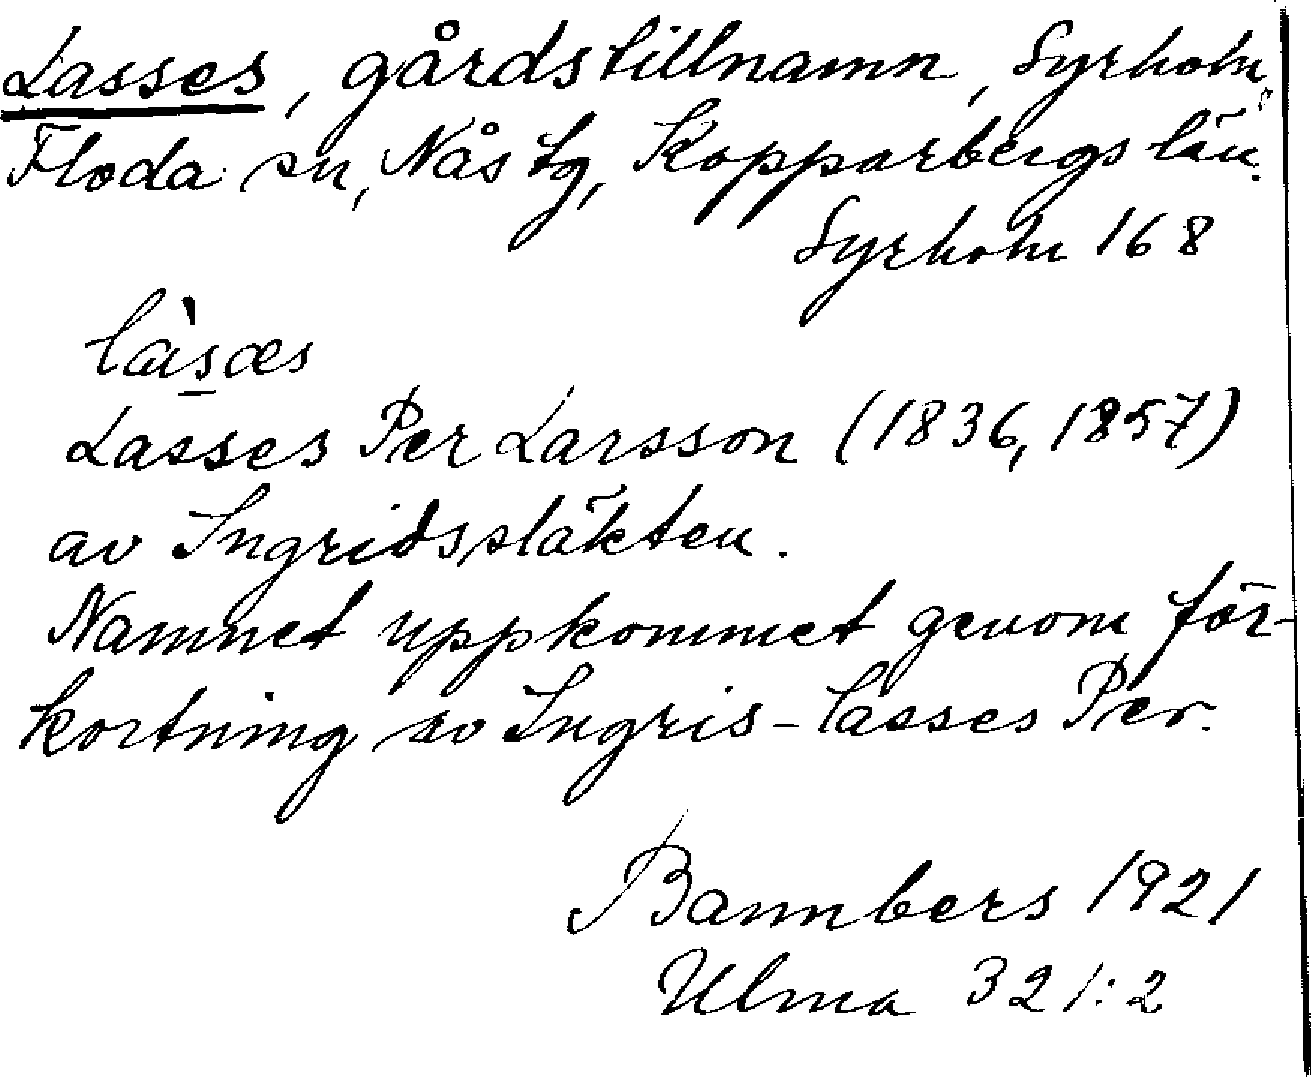 Lasses, gårdstillnamn, Syrholn,
Floda sn, Nås tg, Kopparbergs län.
Syrholn 168
làsæs
Lasses Per Larsson (1836, 1857)
av Ingridssläkten.
Namnet uppkommet genom för-
kortning av Ingris-lasses Per.
Bannbers 1921
Ulma 321:2